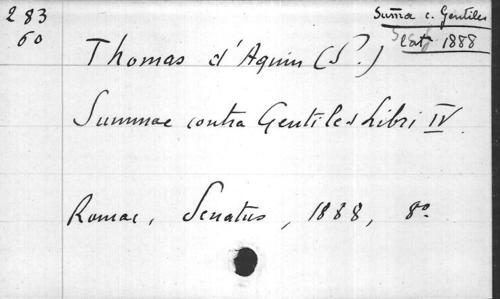 283
60
Suma c. Gentiles
Lat. 1888
Thomas d'Aquin (S.)
Summae contra Gentiles Libri IV.
Romae, Senatus, 1888, 8º